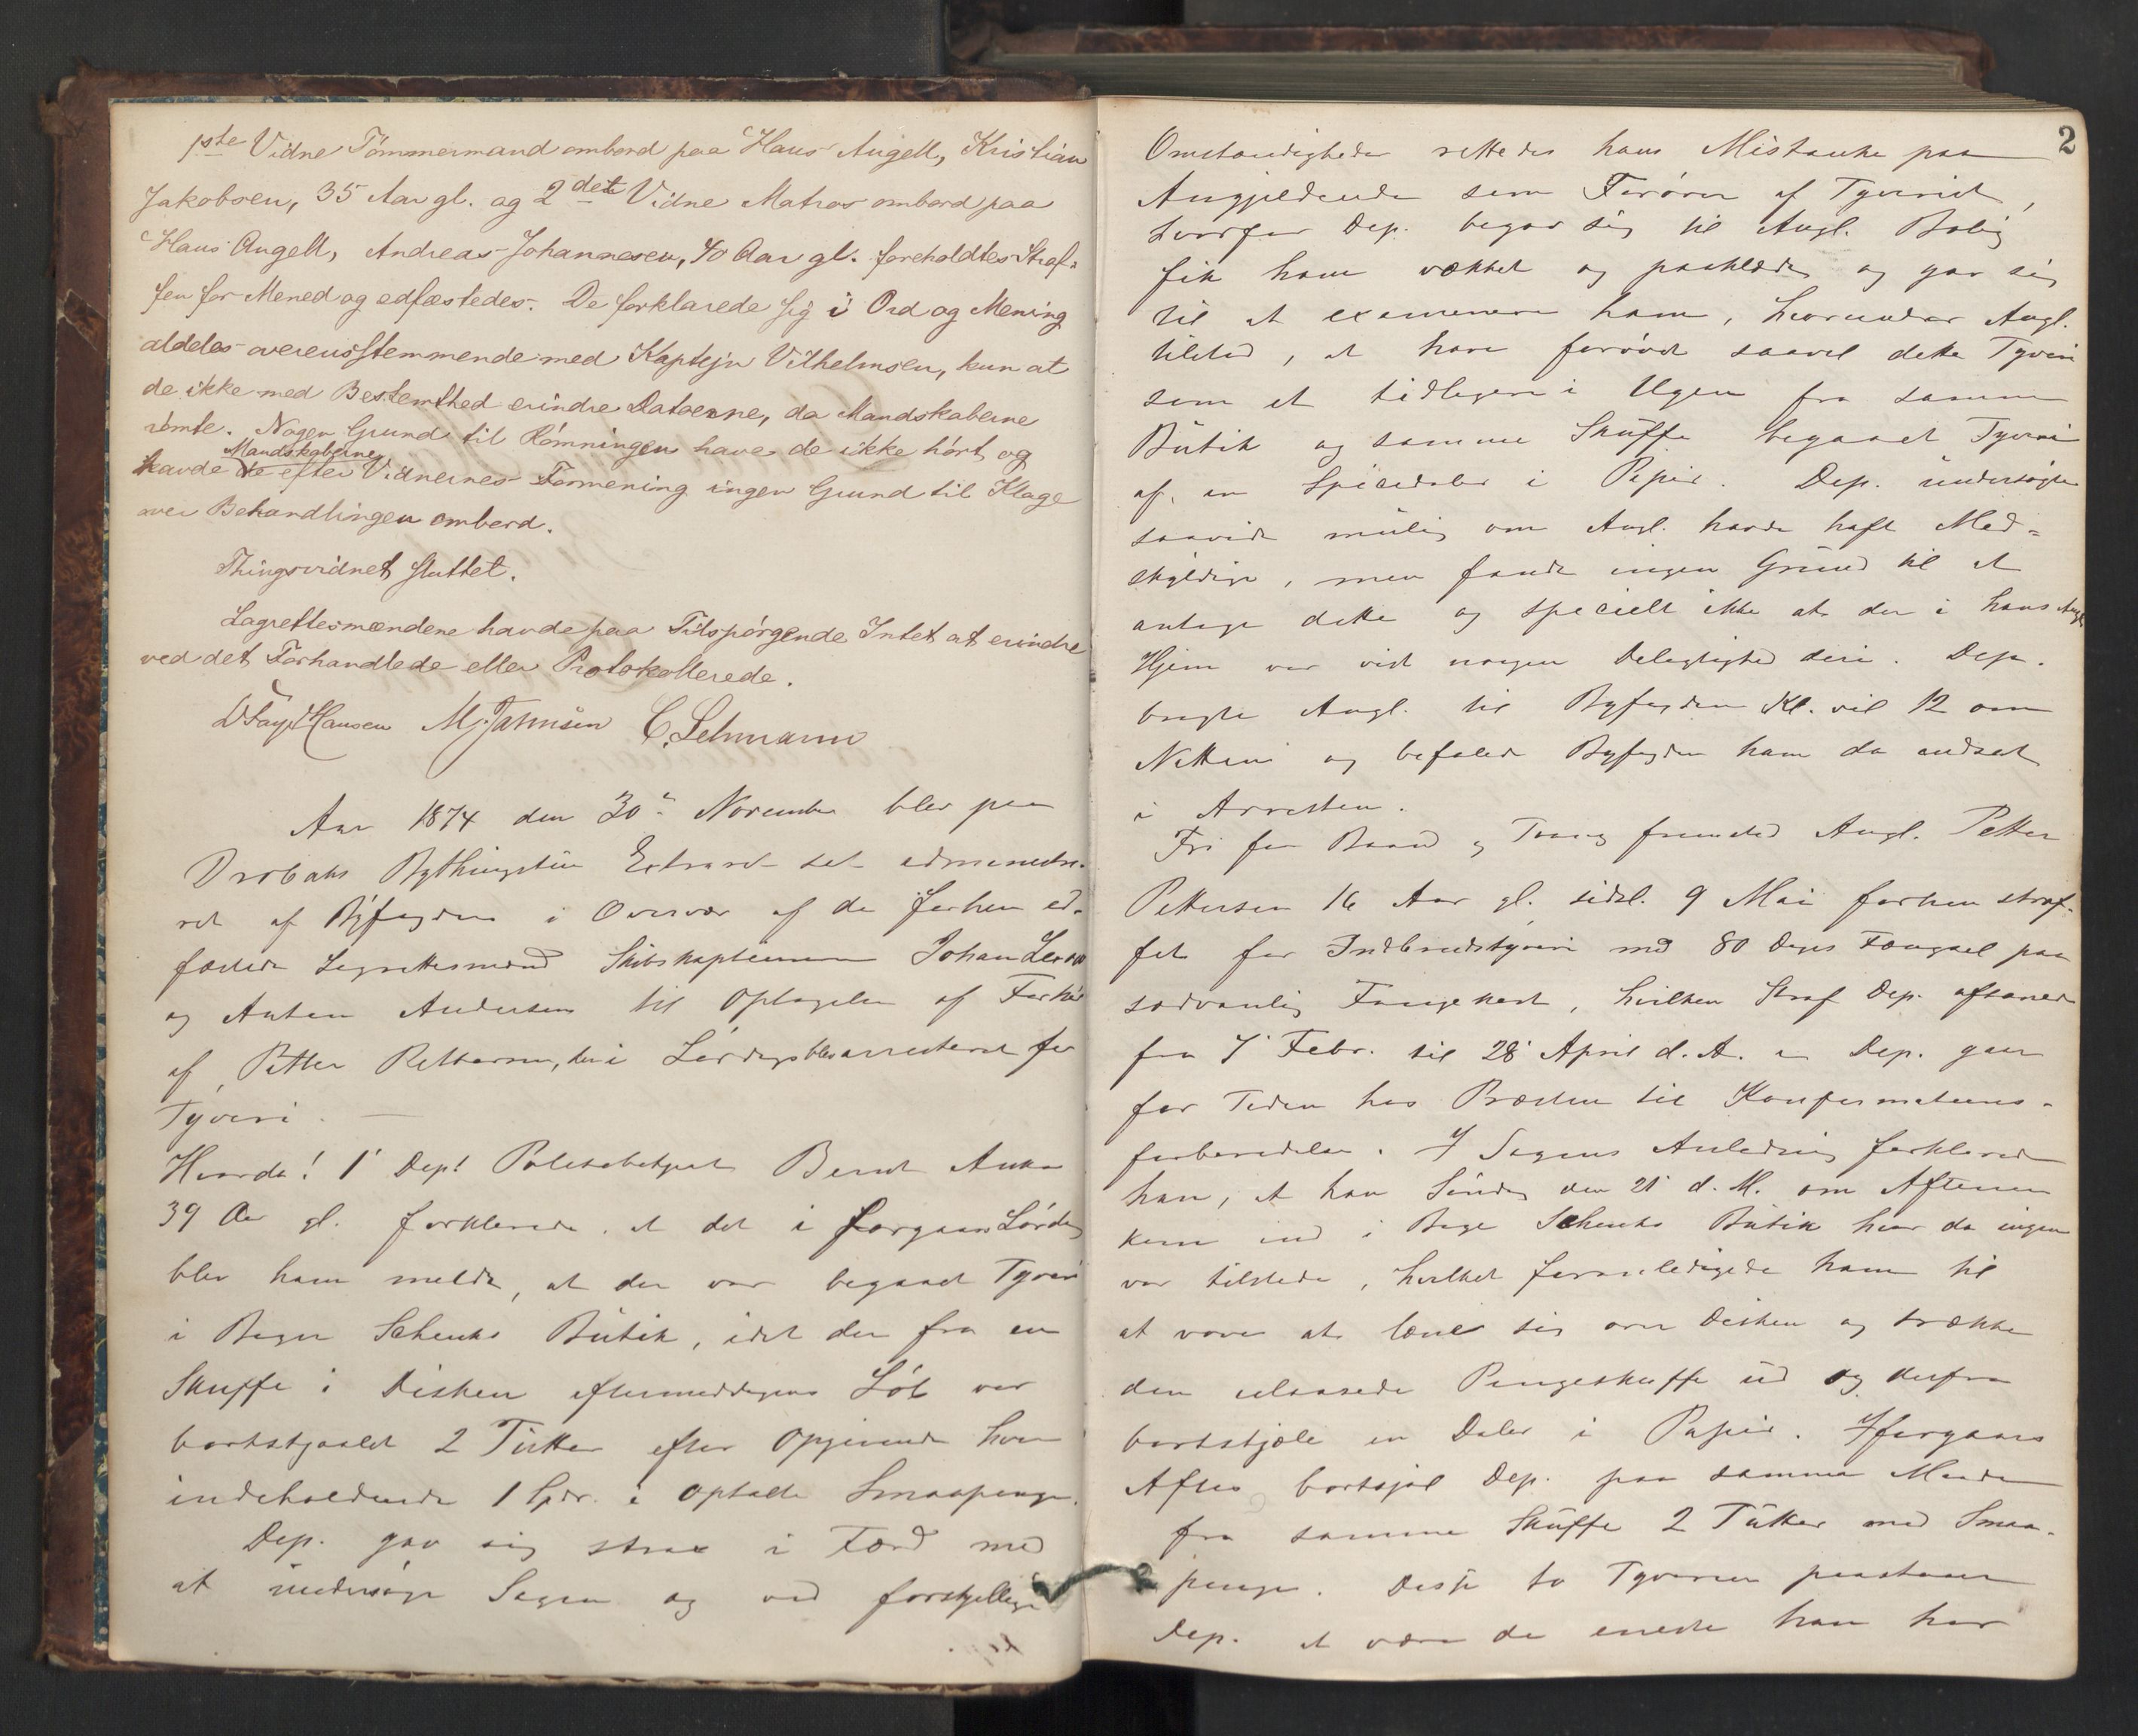 1ste Vidne Tömmermand ombord paa Hans Angell, Kristian
Jakobsen, 35 Aar gl. og 2det Vidne Matros ombord paa
Hans Angell, Andreas Johannesen, 40 Aar gl. foreholdtes Straf-
fen for Mened og edfæstedes. De forklarede sig i Ord og Mening
aldeles overensstemmende med Kaptejn Vilhelmsen, kun at
de ikke med Bestemthed erindre Datoerne, da Mandskaberne
römte. Nogen Grund til Römningen have de ikke hört og
Mandskaberne
havde de efter Vidnernes Formening ingen Grund til Klage
over Behandlingen ombord.
Thingsvidnet sluttet.
Lagrettesmændene havde paa Tilspörgende Intet at erindre
ved det Forhandlede eller Protokollerede.
Hansen M. C. Lehmann
Aar 1874 den 30' November blev paa
Dröbaks Bythingstue Extraret sat administre-
ret af Byfogden i Overvær af de forhen ed-
fæstede Lagrettesmænd Skibskapteinerne Johan
og Anton Andersen til Optagelse af Forhör
af Petter Pettersen, der i Lördags blev arresteret for
Tyveri. —
Hvorda! 1' Dept Politibetjent Bernt Anker
39 Aar gl. forklarede, at det i Forgaars Lördag
blev ham meldt, at der var begaaet Tyveri
i Bager Schenks Butik, idet der fra en
Skuffe i Disken eftermiddagens Löb var
bortstjaalet 2 Tutter efter Opgivende hver
indeholdende 1 Spdr. i optalte Smaapenge.
Dep. gav sig strax i Færd med
at undersöge Sagen og ved forskjellige
2
Omstændigheder rettedes hans Mistanke paa
Angjeldende somForöver af Tyveriet,
hvorfor Dep. begav sig til Angl. Bolig
fik ham vækket og paaklædt og gav sig
til at examinere ham, hvorunder Angl.
tilstod, at have forövet saavel dette Tyveri
som et tidligere i Ugen fra samme
Butik og samme Skuffe begaaet Tyveri
af en Speciedaler i Papir. Dep. undersögte
saavidt mulig om Angl. havde haft Med-
skyldige, men fandt ingen Grund til at
antage dette og specielt ikke at der i hans Angl.
Hjem var vist nogen Delagtighed deri. Dep.
bragte Angl. til Byfogden Kl. vel 12 om
Natten og befalede Byfogden ham da indsat
i Arresten.
Fri for Baand og Tvang fremstod Angl. Petter
Pettersen 16 Aar gl. sidstl. 9 Mai forhen straf-
fet for Indbrudstyveri med 80 Dages Fængsel paa
sædvanlig Fangekost, hvilken Straf Dep. afsonede
fra 7' Febr. til 28' April d. A. Dep. gaar
for Tiden hos Præsten til Konfirmations-
forberedelse. I Sagens Anledning forklarede
han, at han Söndag den 21' d. M. om Aftenen
kom ind i Bager Schenks Butik hvor da ingen
var tilstede, hvilket foranledigede ham til
at vove at læne sig over Disken og trække
den ulaasede Pengeskuffe ud og derfra
bortstjæle en Daler i Papir. Iforgaars
Aftes bortstjal Dep. paa samme Maade
fra samme Skuffe 2 Tutter med Smaa-
penge. Disse to Tyverier paastaar
Dep. at være de eneste han har